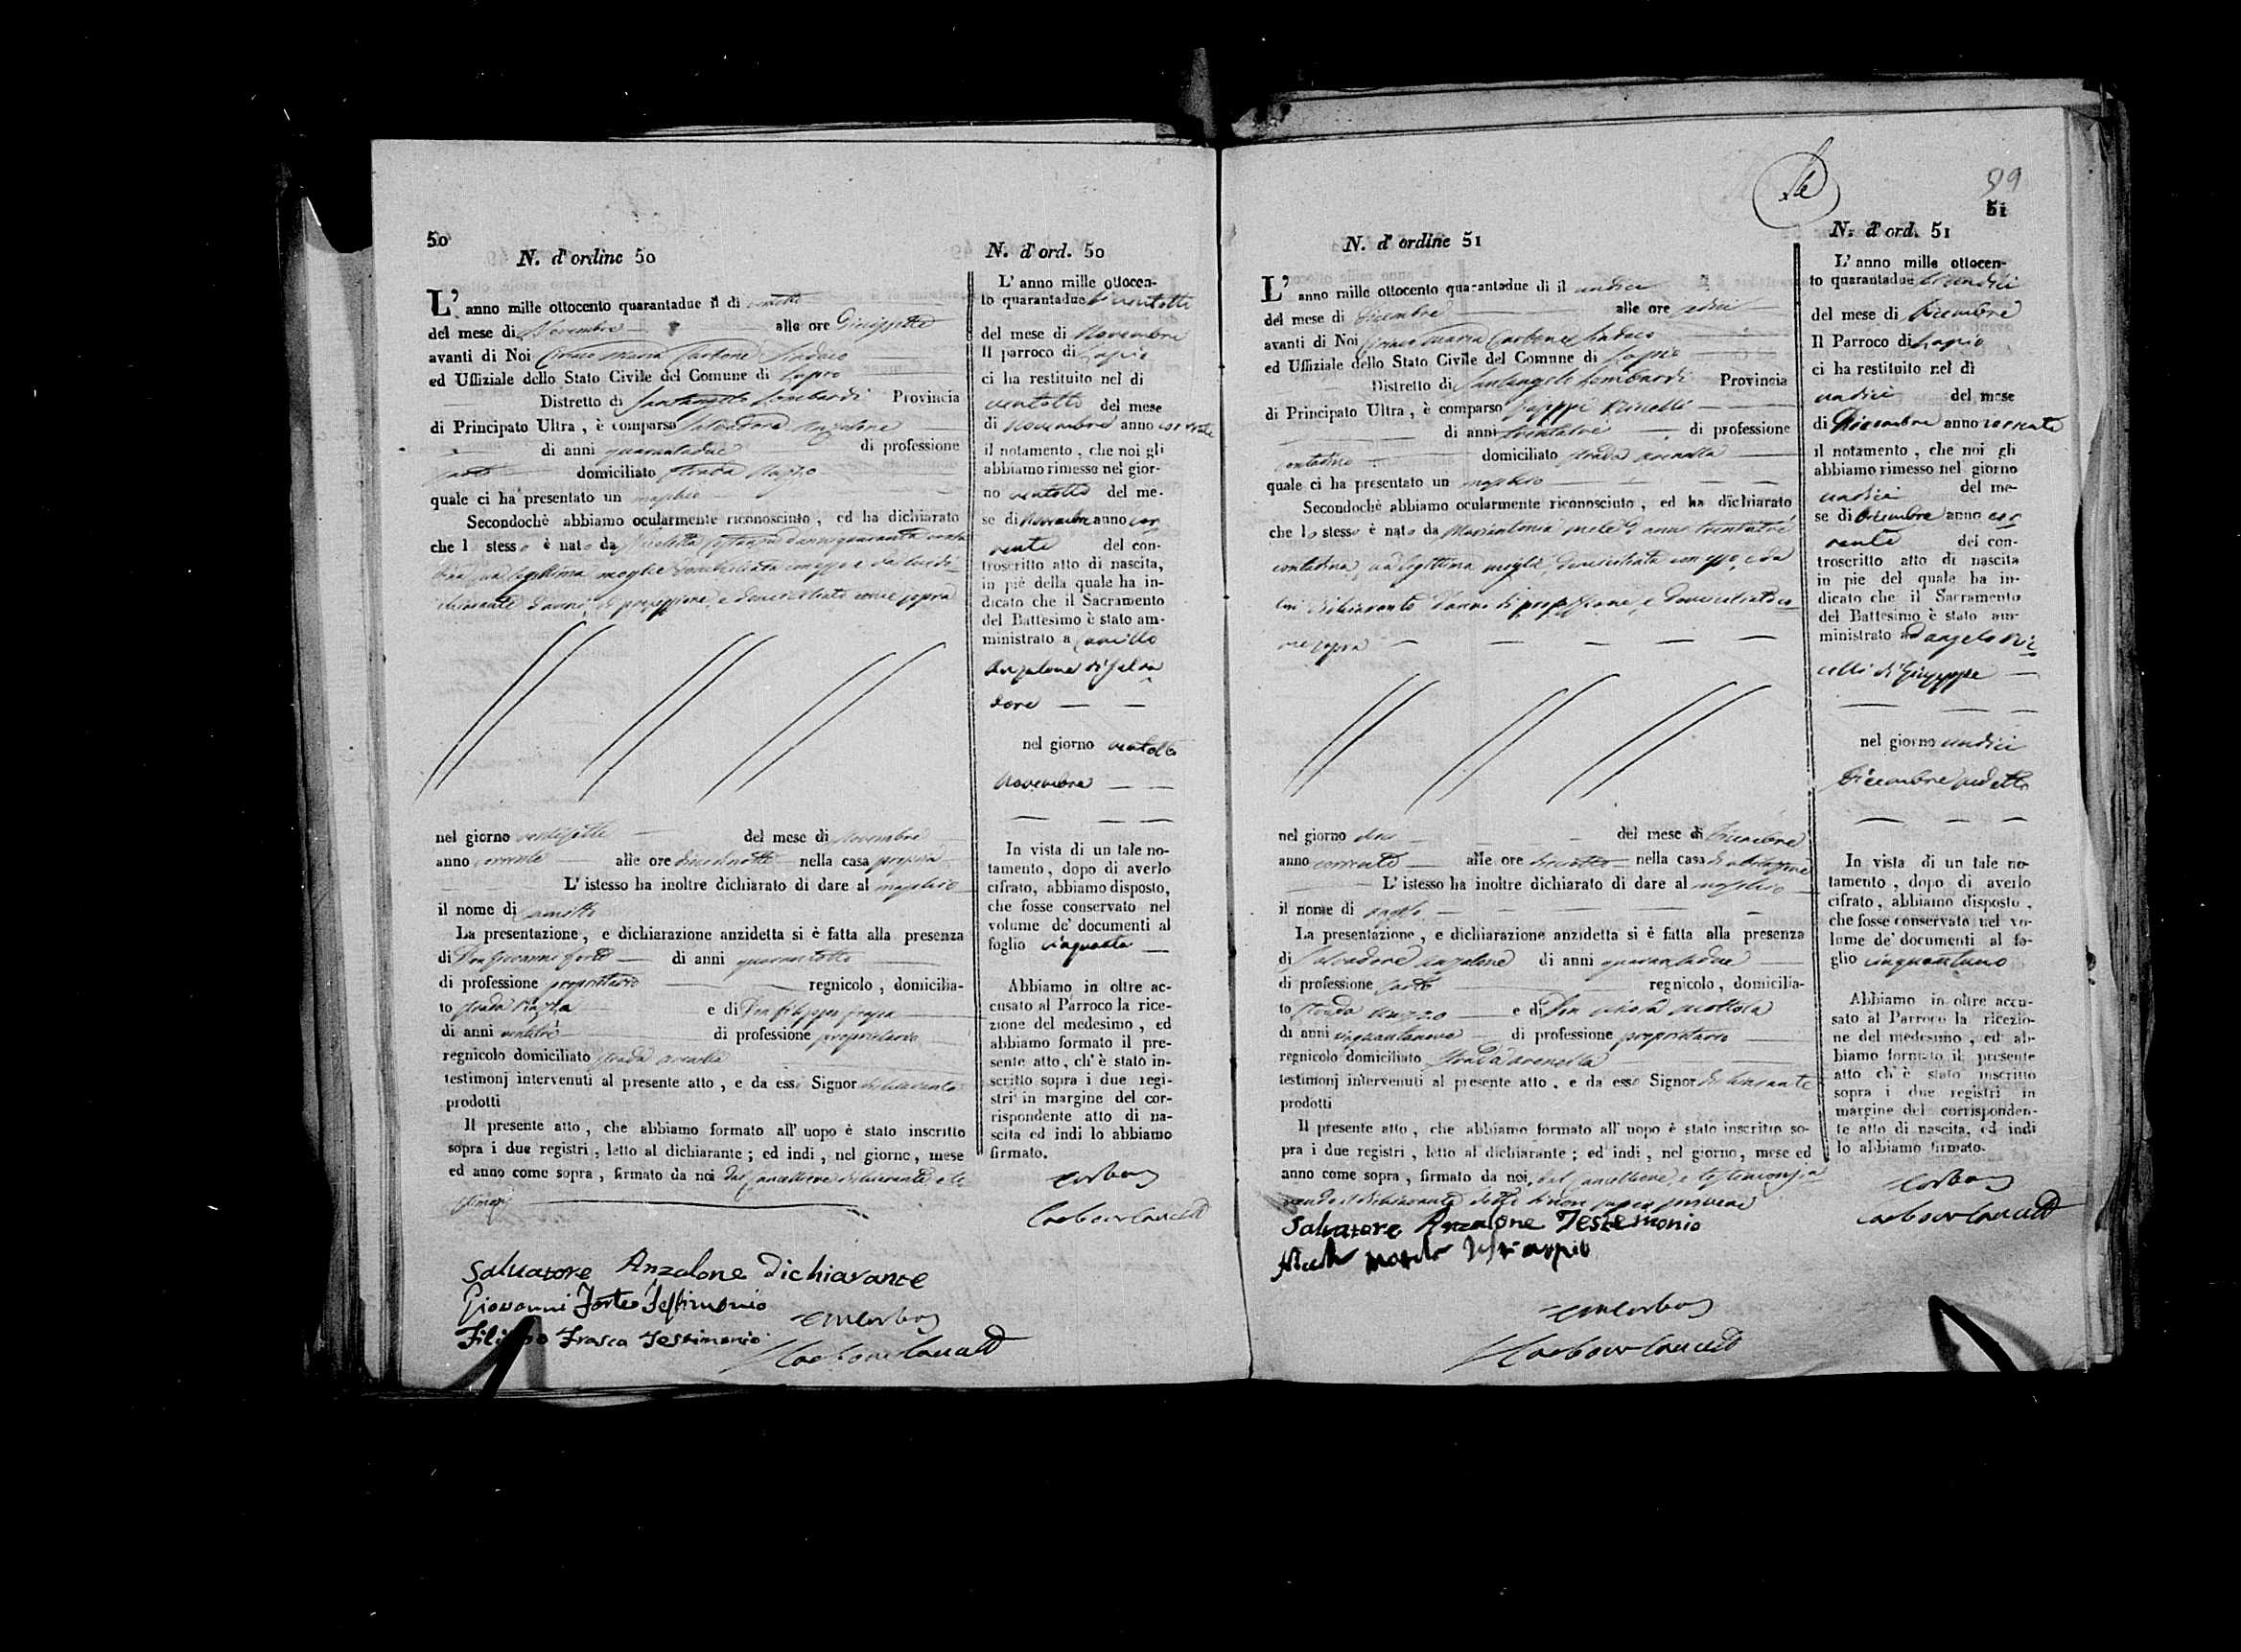 50
N. d'ordine 50
L' anno mille ottocento quarantadue il di ventotto
del mese di Novembre alle ore Diciassette
avanti di Noi Ciriaco Maria Carbone Sindaco
ed Uffiziale dello Stato Civile del Comune di Lapio
Distretto di Santangelo Lombardi Provincia
di Principato Ultra, è comparso Salvadore Anzalone
di anni quarantadue di professione
sarto domiciliato strada
quale ci ha presentato un maschio
Secondochè abbiamo ocularmente riconosciuto, ed ha dichiarato
che lo stesso è nato da Nicoletta d'anni quaranta
sua legittima moglie domiciliata con esso e da lui di-
chiarante d'anni, di professione, e domiciliato come sopra
nel giorno ventisette del mese di Novembre
anno corrente alle ore nella casa propria
L' istesso ha inoltre dichiarato di dare al maschio
il nome di Camillo
La presentazione, e dichiarazione anzidetta si è fatta alla presenza
di Don Giovanni Forte di anni quarantotto
di professione proprietario regnicolo, domicilia-
to strada Piazza e di Don Filippo Frasca
di anni ventitrè di professione proprietario
regnicolo domiciliato strada arenella
testimonj intervenuti al presente atto, e da esso Signor dichiarante
prodotti
Il presente atto, che abbiamo formato all' uopo è stato inscritto
sopra i due registri, letto al dichiarante; ed indi, nel giorno, mese
ed anno come sopra, firmato da noi dal Cancelliere dichiarante e te-
stimonj
Salvatore Anzalone Dichiarante
Giovanni Forte Testimonio
Filippo Frasca Testimonio
N. d'ord. 50
L' anno mille ottocen-
to quarantadue li ventotto
del mese di Novembre
Il parroco di Lapio
ci ha restituito nel di
ventotto del mese
di Novembre anno corrente
il notamento, che noi gli
abbiamo rimesso nel gior-
no ventotto del me-
se di Novembre anno cor
rente del con-
troscritto atto di nascita,
in piè della quale ha in-
dicato che il Sacramento
del Battesimo è stato am-
ministrato a Camillo
Anzalone di Salva
dore
nel giorno ventotto
Novembre
In vista di un tale no-
tamento, dopo di averlo
cifrato, abbiamo disposto,
che fosse conservato nel
volume de' documenti al
foglio cinquanta
Abbiamo in oltre ac-
cusato al Parroco la rice-
zione del medesimo, ed
abbiamo formato il pre-
sente atto, ch' è stato in-
scritto sopra i due regi-
stri in margine del cor-
rispondente atto di na-
scita ed indi lo abbiamo
firmato.
99
51
N. d'ordine 51
L' anno mille ottocento quarantadue di il undici
del mese di Dicembre alle ore
avanti di Noi Ciriaco Maria Carbone Sindaco
ed Uffiziale dello Stato Civile del Comune di Lapio
Distretto di Santangelo Lombardi Provincia
di Principato Ultra, è comparso Giuseppe Ricelli
di anni trentatre di professione
contadino domiciliato strada arenella
quale ci ha presentato un maschio
Secondochè abbiamo ocularmente riconosciuto, ed ha dichiarato
che lo stesso è nato da Mariantonia d'anni trentatrè
contadina, sua legittima moglie, domiciliata con esso, e da
lui dichiarante d'anni di professione, e domiciliato co-
me sopra
nel giorno dieci del mese di Dicembre
anno corrente alle ore nella casa di abitazione
L' istesso ha inoltre dichiarato di dare al maschio
il nome di Angelo
La presentazione, e dichiarazione anzidetta si è fatta alla presenza
di Salvadore Anzalone di anni quarantadue
di professione sarto regnicolo, domicilia-
to strada e di Don Nicola Mottola
di anni cinquantanove di professione proprietario
regnicolo domiciliato strada arenella
testimonj intervenuti al presente atto, e da esso Signor dichiarante
prodotti
Il presente atto, che abbiamo formato all' uopo è stato inscritto so-
pra i due registri, letto al dichiarante; ed indi, nel giorno, mese ed
anno come sopra, firmato da noi, dal Cancelliere, e testimonj a-
vendo il dichiarante detto di non saper scrivere
Salvatore Anzalone Testemonio
N. d'ord. 51
L' anno mille ottocen-
to quarantadue li undici
del mese di Dicembre
Il Parroco di Lapio
ci ha restituito nel di
undici del mese
di Dicembre anno corrente
il notamento, che noi gli
abbiamo rimesso nel giorno
undici del me-
se di Dicembre anno cor
rente del con-
troscritto atto di nascita
in pie del quale ha in-
dicato che il Sacramento
del Battesimo è stato am-
ministrato ad Angelo Ri
celli di Giuseppe
nel giorno undici
Dicembre sudetto
In vista di un tale no-
tamento, dopo di averlo
cifrato, abbiamo disposto,
che fosse conservato nel vo-
lume de' documenti al fo-
glio cinquantuno
Abbiamo in oltre accu-
sato al Parroco la ricezio-
ne del medesimo, ed ab-
biamo formato il presente
atto ch' è stato inscritto
sopra i due registri in
margine del corrisponden-
te atto di nascita, ed indi
lo abbiamo firmato.